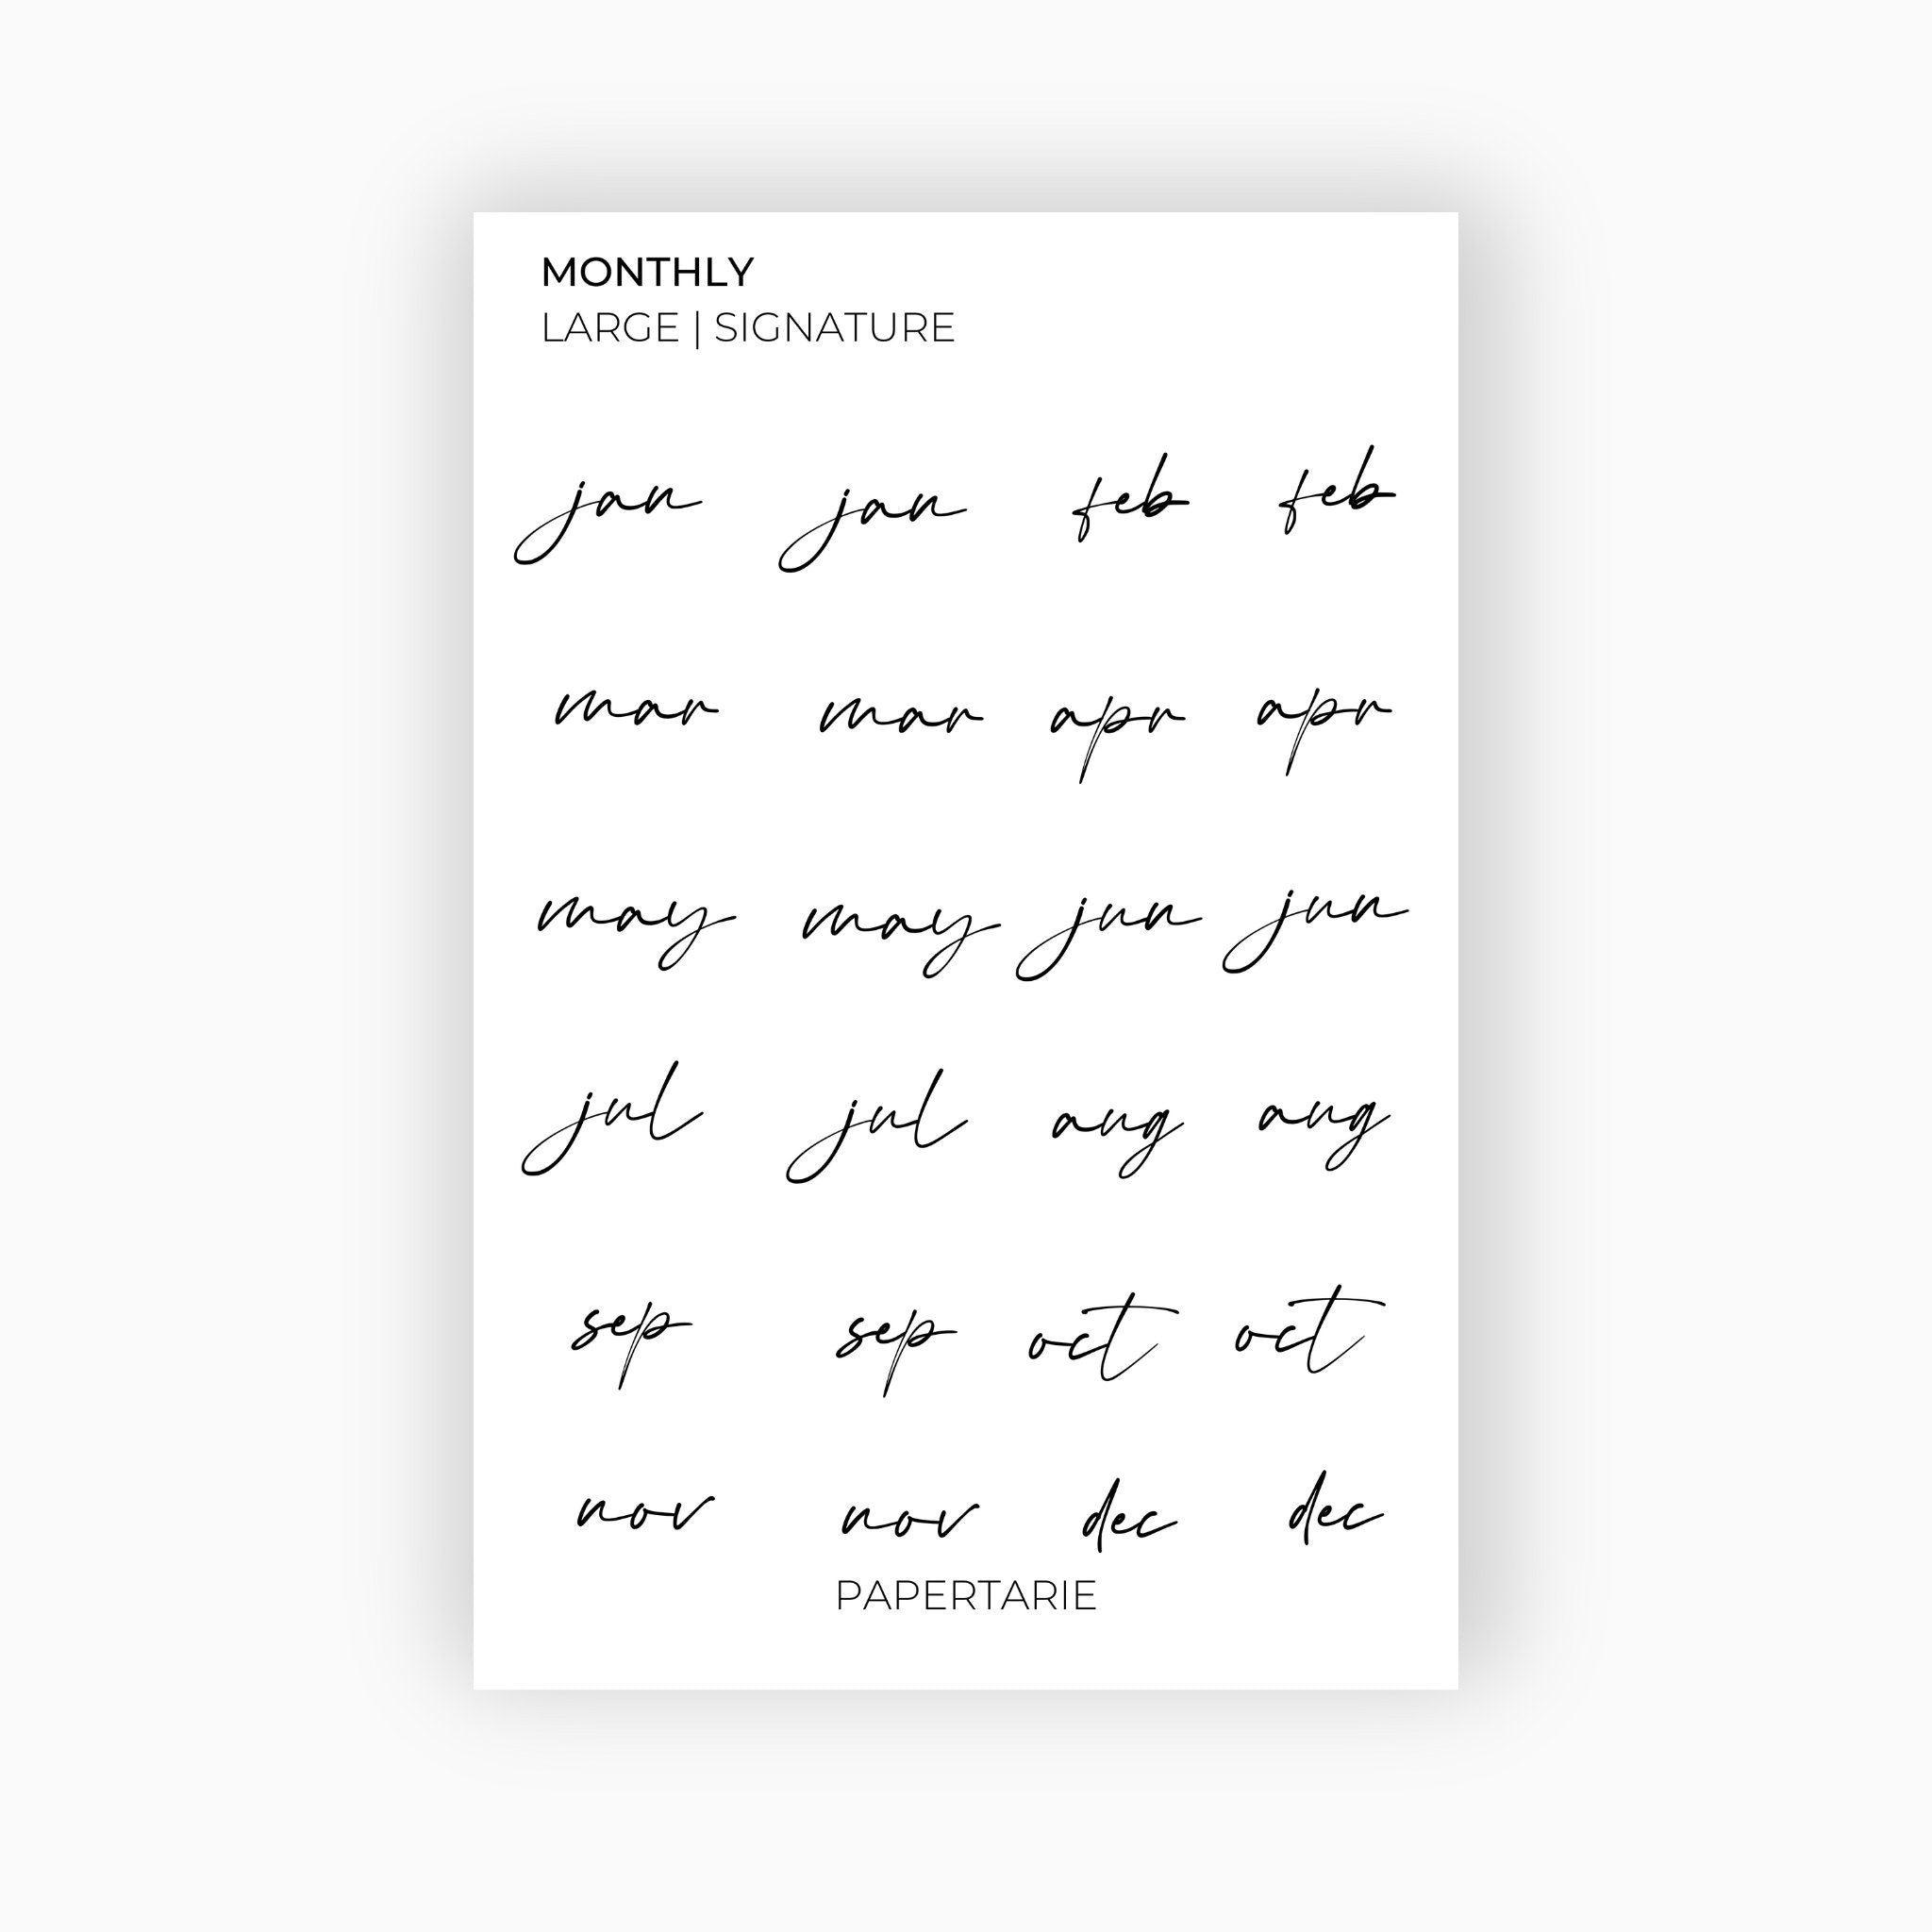 MONTHLY
LARGE | SIGNATURE
jan jan feb feb
mar mar apr apr
may may jun jun
jul jul aug aug
sep sep oct oct
nov nov dec dec
PAPERTARIE